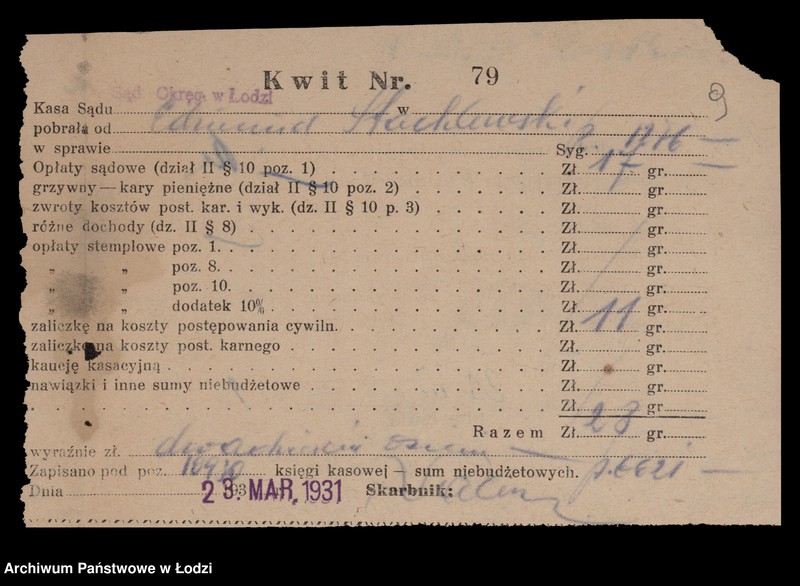 Kwit Nr. 79
Sąd Okręg. w Łodzi
Kasa Sądu w
pobrała od Edmund Stachlewski
w sprawie Syg.
Opłaty sądowe (dział II § 10 poz. 1) Zł. 17 gr. —
grzywny — kary pieniężne (dział II § 10 poz. 2) Zł. gr.
zwroty kosztów post. kar. i wyk. (dz. II § 10 p. 3) Zł. gr.
różne dochody (dz. II § 8) Zł. gr.
opłaty stemplowe poz. 1. Zł. gr.
„ „ poz. 8. Zł. gr.
„ „ poz. 10. Zł. gr.
„ „ dodatek 10% Zł. gr.
zaliczkę na koszty postępowania cywiln. Zł. 11 gr.
zaliczkę na koszty post. karnego Zł. gr.
kaucję kasacyjną Zł. gr.
nawiązki i inne sumy niebudżetowe Zł. gr.
Zł. gr.
Razem Zł. 28 gr.
wyraźnie zł. dwadzieścia osiem —
Zapisano pod poz. księgi kasowej — sum niebudżetowych.
Dnia 23. MAR. 1931 Skarbnik:
Archiwum Państwowe w Łodzi